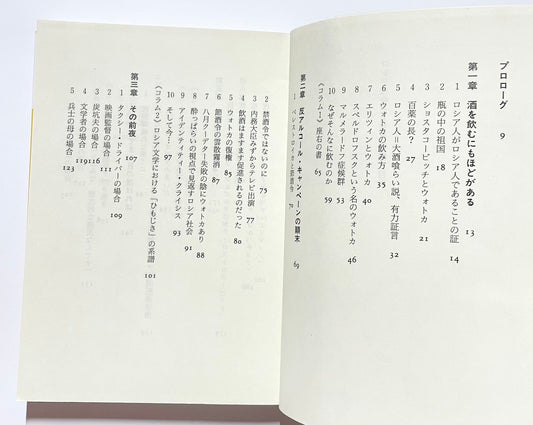 プロローグ 9
第一章 酒を飲むにもほどがある 13
1 ロシア人がロシア人であることの証 14
2 瓶の中の祖国 18
3 ショスタコービッチとウォトカ 21
4 百薬の長? 27
5 ロシア人=大酒喰らい説、有力証言 32
6 ウォトカの飲み方 35
7 エリツィンとウォトカ 40
8 スペルドロフスクという名のウォトカ 46
9 マルメラードフ症候群 53
10 なぜそんなに飲むのか 59
《コラム1》座右の書 65
第二章 反アルコール・キャンペーンの顚末 69
1 ペレストロイカと禁酒令 70
2 禁酒令ではないのに 75
3 内務大臣みずからテレビ出演 77
4 飲酒はますます促進されるのだった 80
5 ウォトカの復権 85
6 節酒令の雲散霧消 87
7 八月クーデター失敗の陰にウォトカあり 88
8 酔っぱらいの視点で見返すロシア社会 91
9 アイデンティティー・クライシス 93
10 そして今…… 97
《コラム2》ロシア文学における「ひもじさ」の系譜 101
第三章 その前夜 107
1 タクシー・ドライバーの場合 109
2 映画監督の場合 111
3 炭坑夫の場合 116
4 文学者の場合 119
5 兵士の母の場合 123